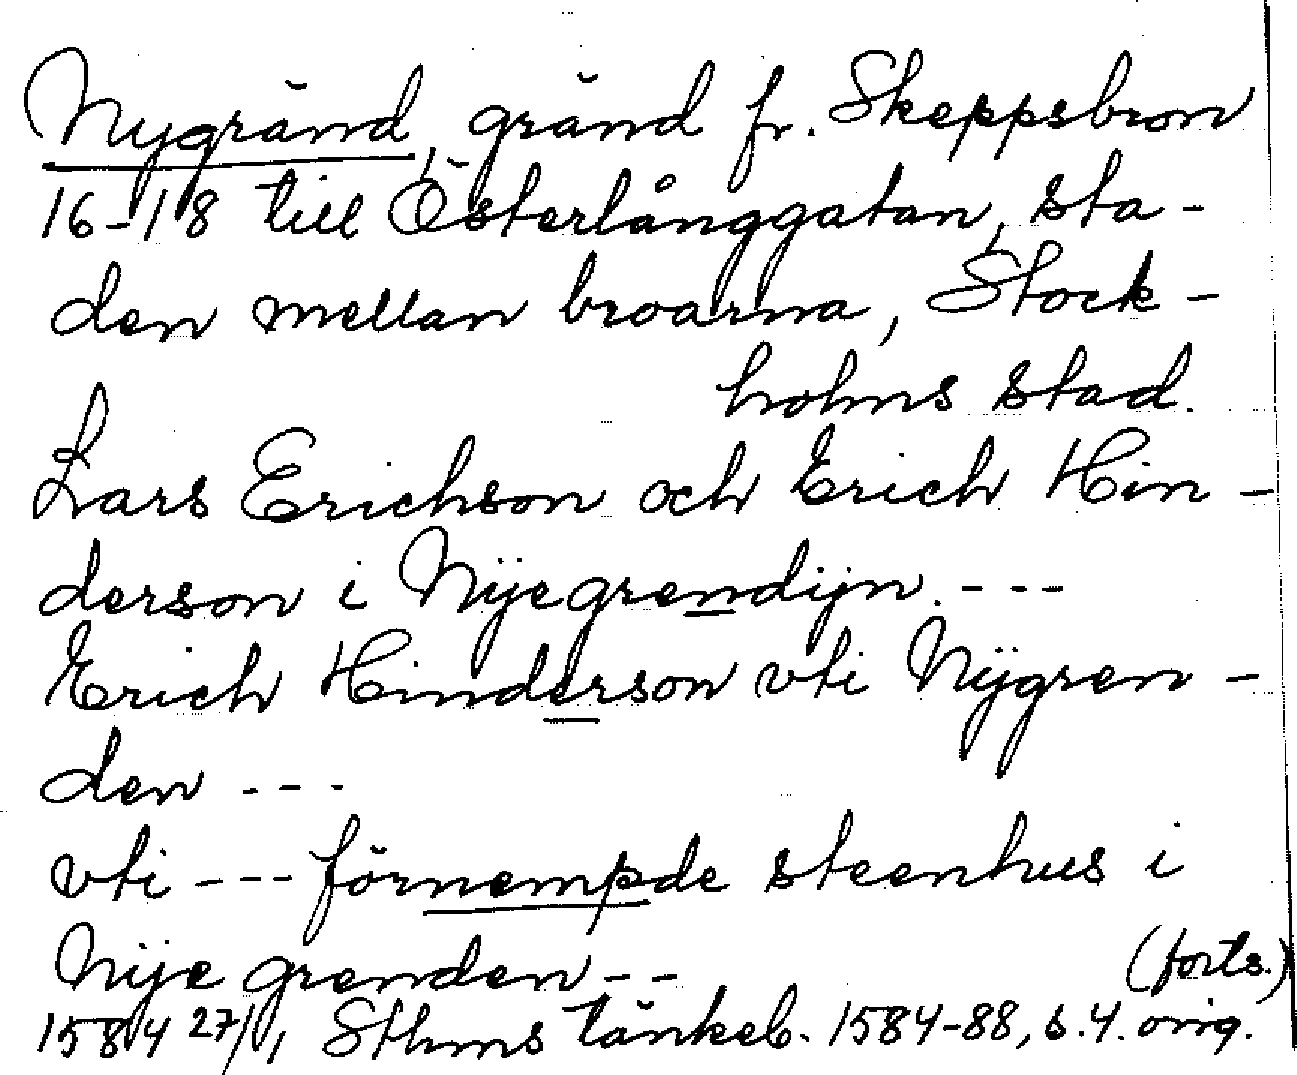 Nygränd, gränd fr. Skeppsbron
16-18 till Österlånggatan, sta-
den mellan broarna, Stock-
holms stad.
Lars Erichson och Erich Hin-
derson i Nÿegrendijn. ---
Erich Hinderson vti Nÿgren-
den ---
vti --- förnempde steenhus i
Nije grenden --
(forts.)
1584 27/1, Sthms tänkeb. 1584-88, s. 4. orig.